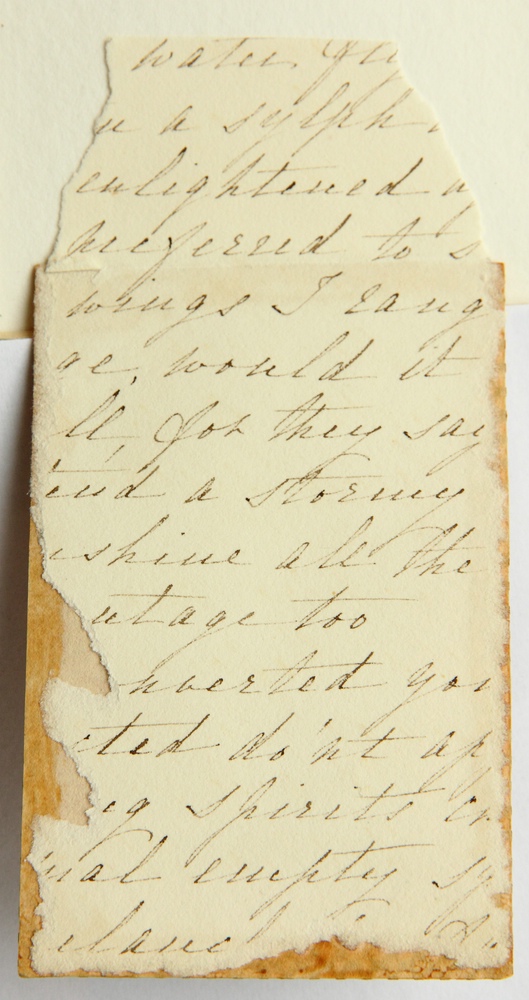 water
a sylph
enlightened
preferred to
wings I rang
ge, would it
ll, for they say
end a stormy
shine all the
ntage too
nverted you
cted do'nt ap
ng spirits
ual empty sy